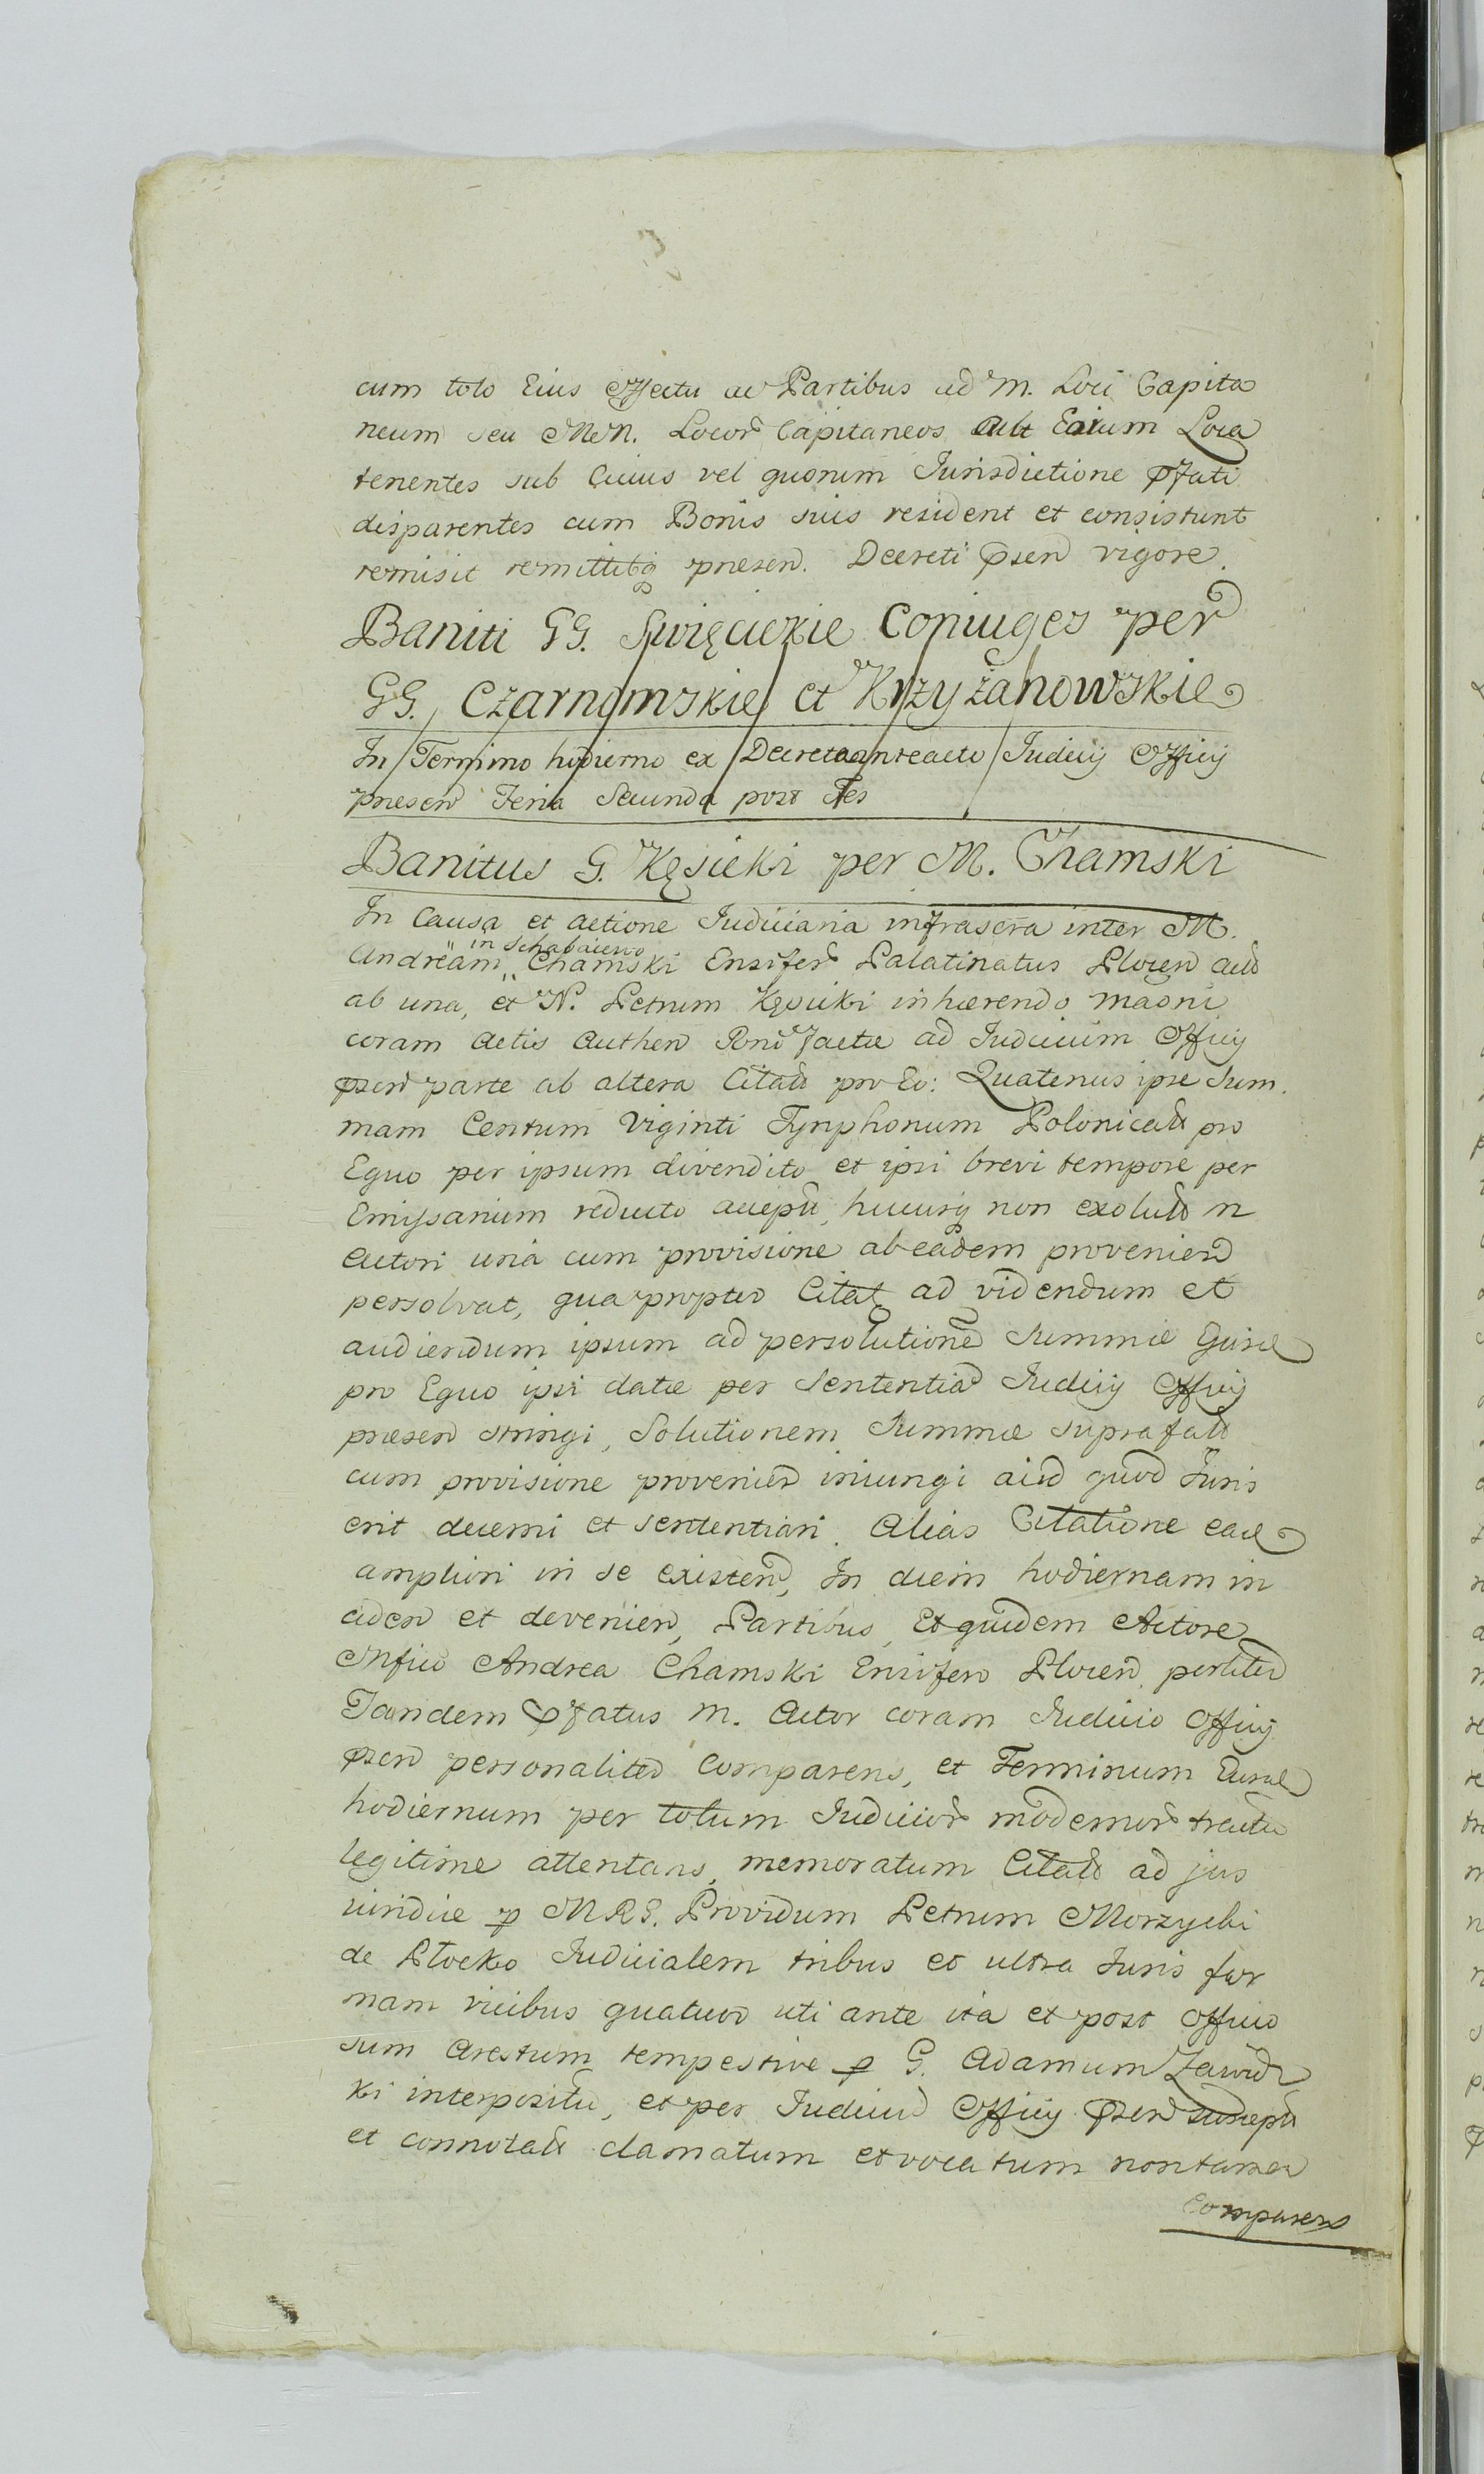 cum toto Eius effectu ac Partibus ad M. Loci Capita
neum seu MM. Locor Capitaneos aut Eorum Loca
tenentes sub Cuius vel quorum Jurisdictione pfati
disparentes cum Bonis suis resident et consistunt
remisit remittitq presen. Decreti psen vigore.
Baniti GG. Święcickie Coniuges per
GG. Czarnomskie et Krzyżanowskie
In Termino hodierno ex Decreto anteacto Judicij Officij
presen Feria Secunda post Fes
Banitus G. Kęsicki per M. Chamski
In Causa et actione Judiciaria infrascra inter M.
in Schabaiewo
Andream Chamski Ensifer Palatinatus Plocen act
ab una, et N. Petrum Kęsicki inhærendo
coram Actis Authen factæ ad Judicium Officij
psen parte ab altera Citat pro Eo: Quatenus ipse Sum
mam Centum Viginti Tynphonum Polonical pro
Equo per ipsum divendito et ipsi brevi tempore per
Emissarium reducto accept, hucusq non exolut n
Actori una cum provisione ab eadem provenien
persolvat, qua propter Citat ad videndum et
audiendum ipsum ad persolutione Summæ
pro Equo ipsi datæ per Sententia Judicij Officij
presen stringi, Solutionem Summæ suprafat
cum provisione provenien iniungi aiud quod Juris
erit decerni et sententiari. Alias Citatione
ampliori in se existen, In diem hodiernam in
ciden et devenien, Partibus, Et quidem Actore
Mfico Andrea Chamski Ensifero Plocen, perliter
Tandem pfatus M. Actor coram Judicio Officij
psen personaliter Comparens, et Terminum
hodiernum per totum Judicior modernor tractu
legitime attentans, memoratum Citat ad jus
iuridice p MRG. Providum Petrum Morzycki
de Płocko Judicialem tribus et ultra Juris for
mam vicibus quatuor uti ante ita et post officio
sum Arestum tempestive p G. Adamum Zawidz
ki interpositu, et per Judiciu Officij psen suscept
et connotat clamatum et vocatum non tamen
Comparen